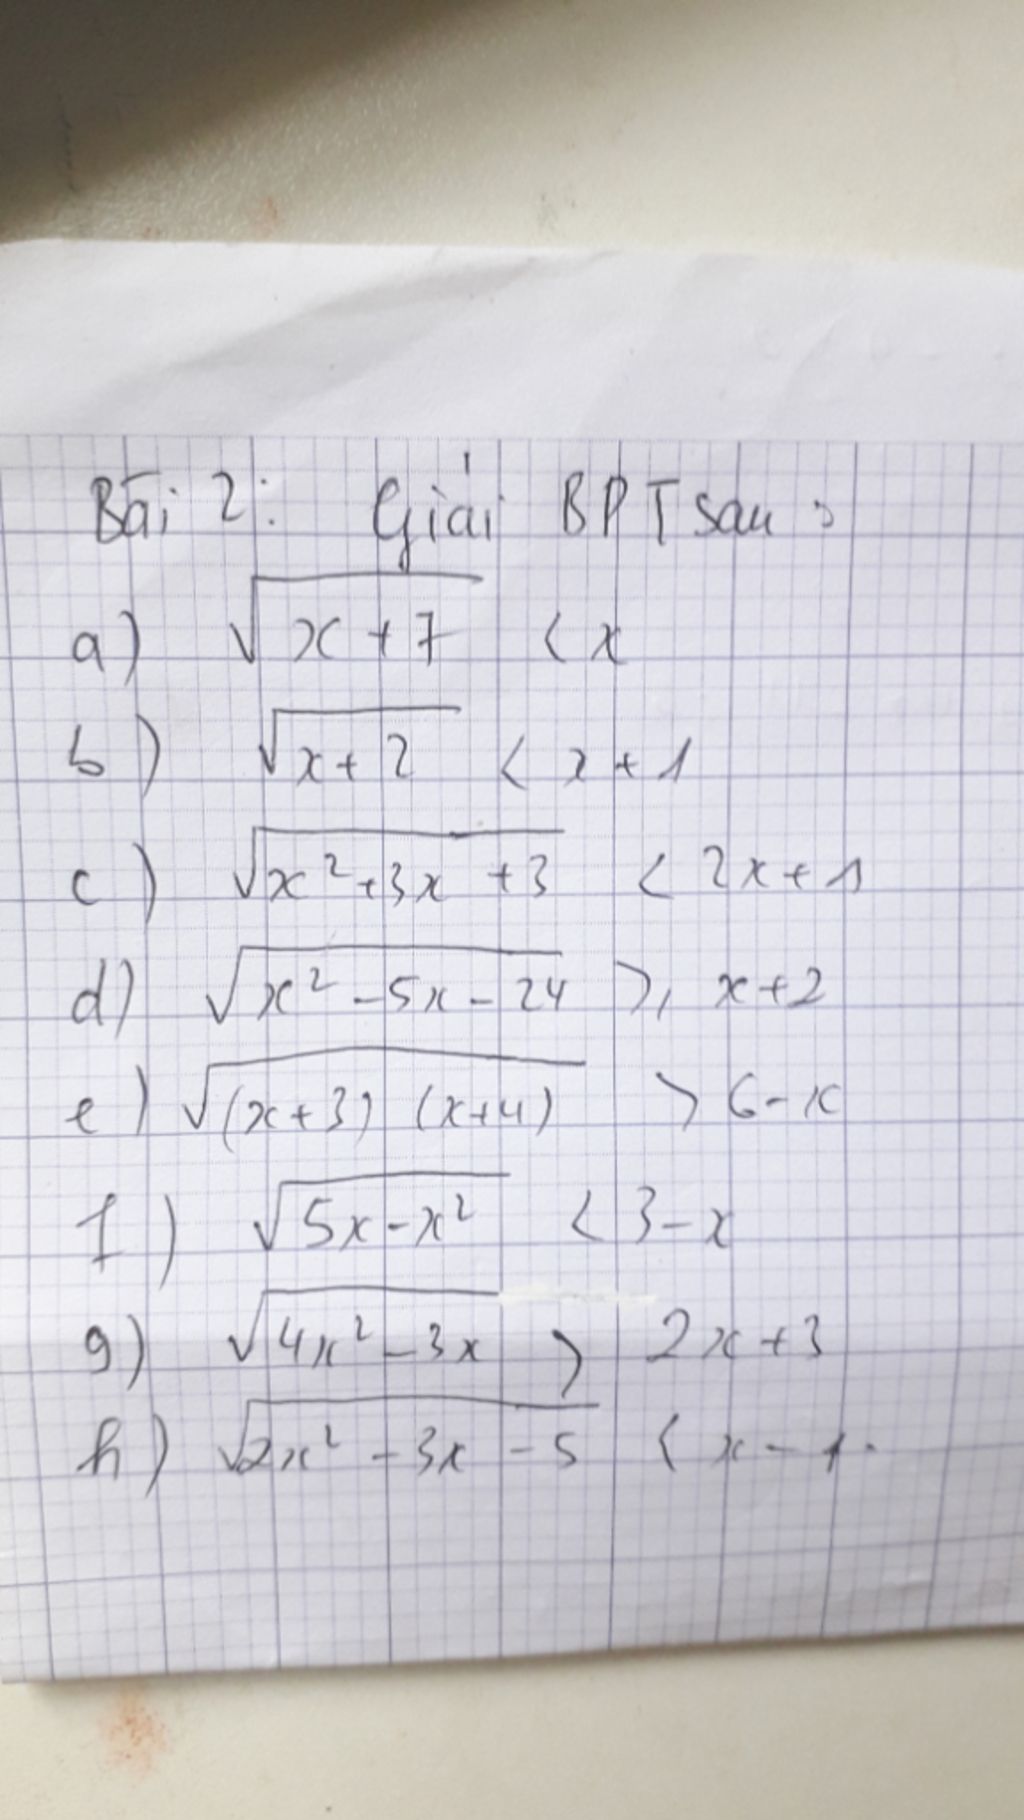 Bài 2: Giải BPT sau:
a) √(x + 7) < x
b) √(x + 2) < x + 1
c) √(x² + 3x + 3) < 2x + 1
d) √(x² - 5x - 24) ≥ x + 2
e) √((x + 3) (x + 4)) > 6 - x
f) √(5x - x²) < 3 - x
g) √(4x² - 3x) > 2x + 3
h) √(2x² - 3x - 5) < x - 1.